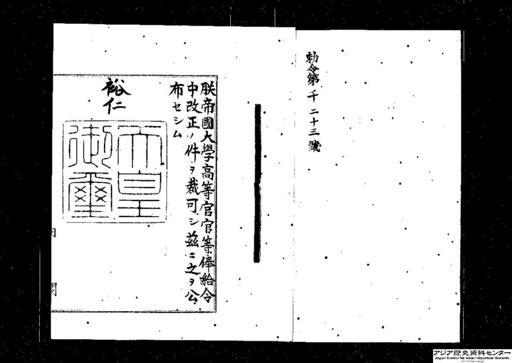 勅令第千二十三號
朕帝國大學高等官官等俸給令
中改正ノ件ヲ裁可シ茲ニ之ヲ公
布セシム
裕仁
天皇
御璽
アジア歴史資料センター
Japan Center for Asian Historical Records